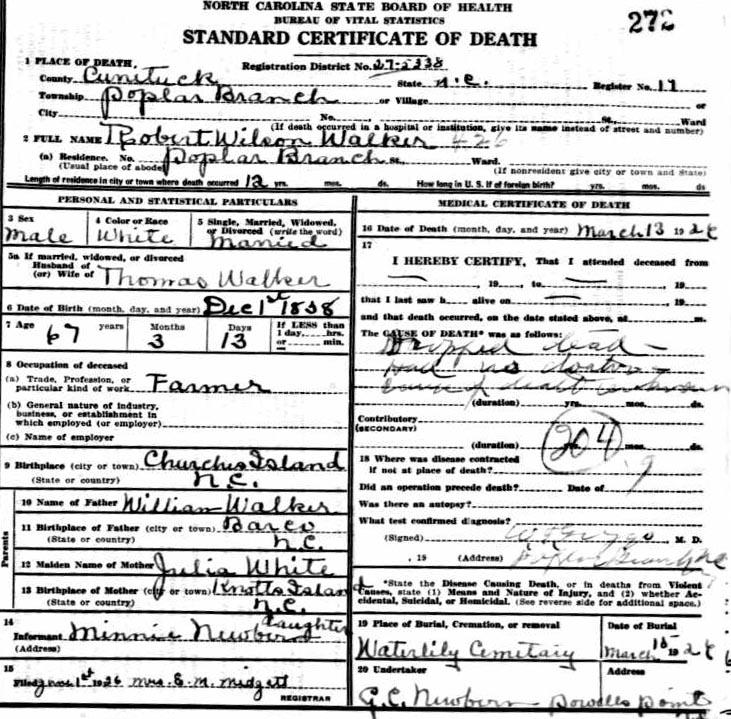 NORTH CAROLINA STATE BOARD OF HEALTH
BUREAU OF VITAL STATISTICS
272
STANDARD CERTIFICATE OF DEATH
1 PLACE OF DEATH, Registration District No. 27-2338
County Currituck State N.C. Register No. 17
Township Poplar Branch or Village or
City No. St., Ward
(If death occurred in a hospital or institution, give its name instead of street and number)
2 FULL NAME Robert Wilson Walker 426
(a) Residence. No. Poplar Branch St., Ward.
(Usual place of abode) (If nonresident give city or town and State)
Length of residence in city or town where death occurred 12 yrs. mos. ds. How long in U. S. if of foreign birth? yrs. mos. ds
PERSONAL AND STATISTICAL PARTICULARS
3 Sex 4 Color or Race 5 Single, Married, Widowed, or Divorced (write the word)
Male White Married
5a If married, widowed, or divorced
Husband of
(or) Wife of Thomas Walker
6 Date of Birth (month, day, and year) Dec 1st 1858
7 Age 67 years Months 3 Days 13 If LESS than 1 day,....hrs. or....min.
8 Occupation of deceased
(a) Trade, Profession, or particular kind of work Farmer
(b) General nature of industry, business, or establishment in which employed (or employer)
(c) Name of employer
9 Birthplace (city or town) Churchs Island
(State or country) N.C.
Parents
10 Name of Father William Walker
11 Birthplace of Father (city or town) Barco
(State or country) N.C.
12 Maiden Name of Mother Julia White
13 Birthplace of Mother (city or town) Knotts Island
(State or country) N.C.
14 daughter
Informant Minnie Newbern
(Address)
15
Filed June 1st 1926 Mrs. E. M. Midgett
REGISTRAR
MEDICAL CERTIFICATE OF DEATH
16 Date of Death (month, day, and year) March 13 192
17
I HEREBY CERTIFY, That I attended deceased from
, 19 , to , 19
that I last saw h alive on , 19
and that death occurred, on the date stated above, at m.
The CAUSE OF DEATH* was as follows:
Dropped dead
Had no doctor
cause of death unknown
(duration) yrs. mos. ds.
Contributory
(SECONDARY)
(duration) yrs. mos. ds.
204
18 Where was disease contracted
if not at place of death?
Did an operation precede death? Date of
Was there an autopsy?
What test confirmed diagnosis?
(Signed) M. D.
, 19 (Address)
*State the Disease Causing Death, or in deaths from Violent
Causes, state (1) Means and Nature of Injury, and (2) whether Ac-
cidental, Suicidal, or Homicidal. (See reverse side for additional space.)
19 Place of Burial, Cremation, or removal Date of Burial
Waterlily Cemetary March 15 192
20 Undertaker Address
G.C. Newbern Powells Point